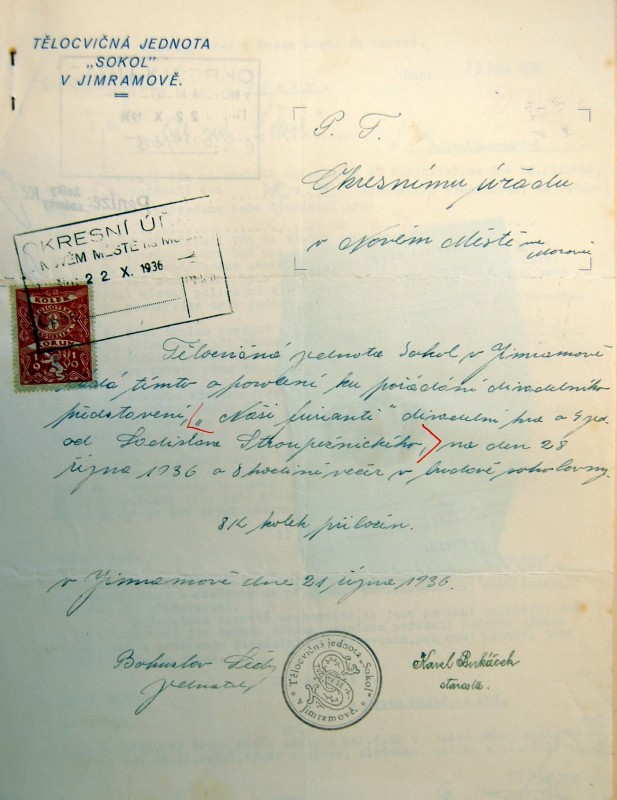 TĚLOCVIČNÁ JEDNOTA
„SOKOL"
V JIMRAMOVĚ.
P. T.
Okresnímu úřadu
v Novém Městě na Moravě
OKRESNÍ ÚŘ
v NOVÉM MĚSTĚ na Mor
22 X. 1936
KOLEK
KORUN
Tělocvičná jednota Sokol v Jimramově
žádá tímto o povolení ku pořádání divadelního
představení, „Naši furianti" divadelní hra o 4 jed.
od Ladislava Stroupežnického, na den 28
října 1936 o 8 hodině večer v budově sokolovny.
8 Kč kolek přiložen.
v Jimramově dne 21 října 1936.
Bohuslav
jednatel
Tělocvičná jednota „Sokol"
v Jimramově.
Karel
starosta.